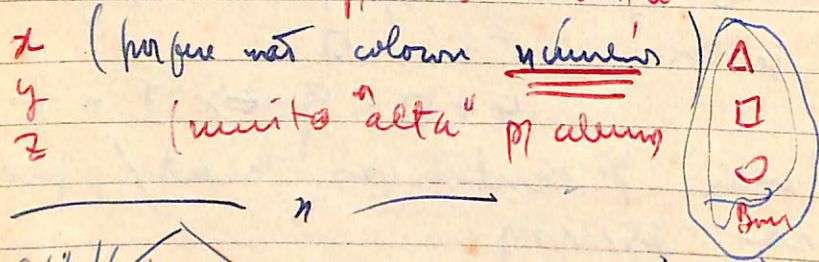 x (porque não colocou números) △
y □
z (muito "alta" p/ aluno) ○
Bom
x